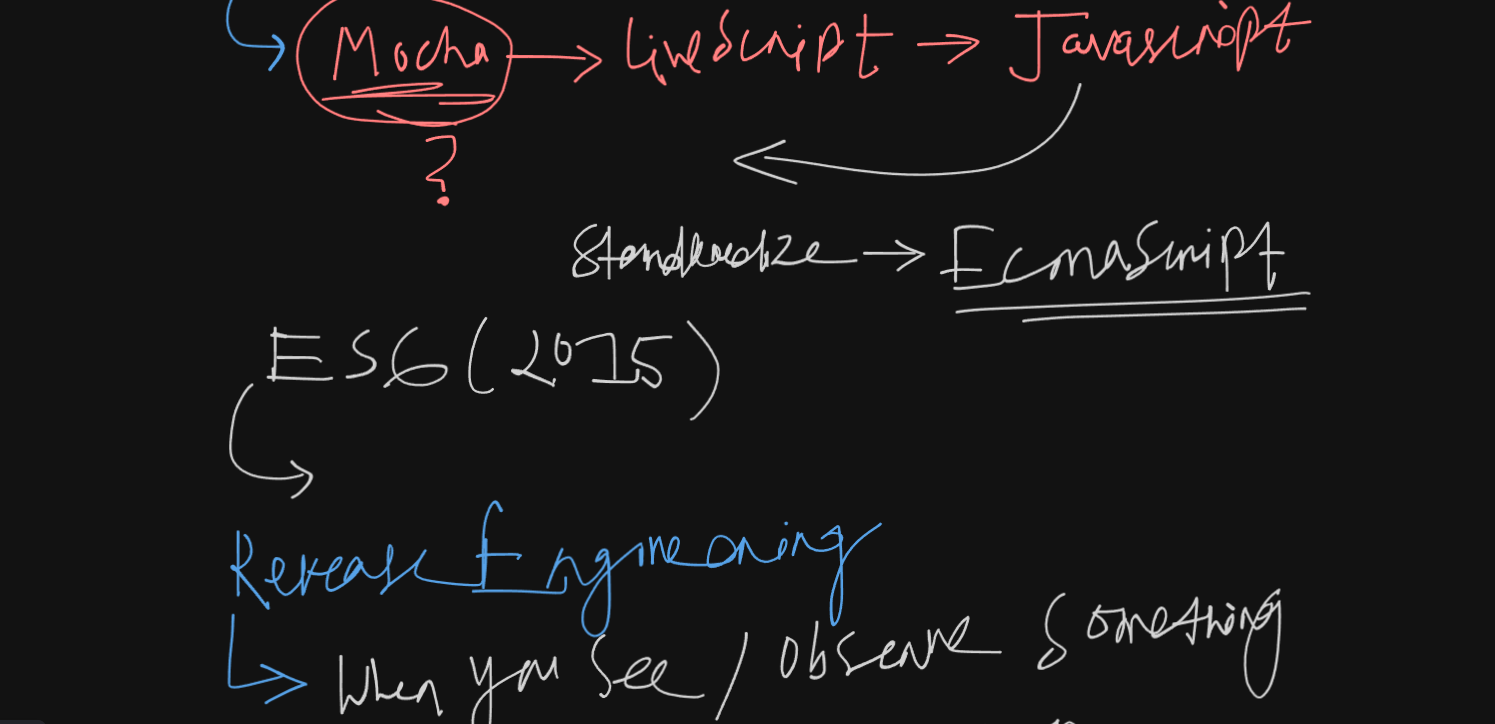 Mocha → LiveScript → Javascript
?
Standerdize → EcmaScript
ES6 (2015)
Reverse Engineering
When you see / observe something